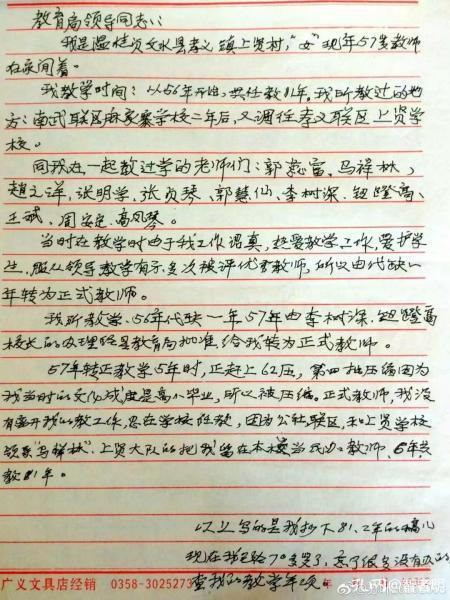 教育局领导同志:
我是温桂贞文水县孝义镇上贤村,"女"现年57岁教师
在家闲着。
我教学时间:以56年开始,共任教11年。我所教过的地
方:南武联区麻家寨学校二年后,又调任孝义联区上贤学
校。
同我在一起教过学的老师们:郭蕊富,马祥林,
赵之洋,张明学,张贞琴、郭慧仙、李树深、
王斌、周安定、高凤琴。
当时在教学时由于我工作认真,热爱教学工作,爱护学
生,服从领导教学有方,多次被评优秀教师,所以由代缺一
年转为正式教师。
我所教学、56年代缺一年,57年由李树深
校长的办理经县教育局批准,给我转为正式教师。
57年转正教学5年时,正赶上62压,第四批压缩因为
我当时的文化成度是高小毕业,所以被压缩。正式教师,我没
有离开我的教工作,忍在学校任教,因为公社联区,和上贤学校
领导"马祥林"、上贤大队的把我留在本校当民办教师,5年共
教11年。
以上写的是我抄下81.2年的稿儿
现在我已经70多岁了,忘了很多没有办的
查我的教学年次。
广义文具店经销 0358-3025273